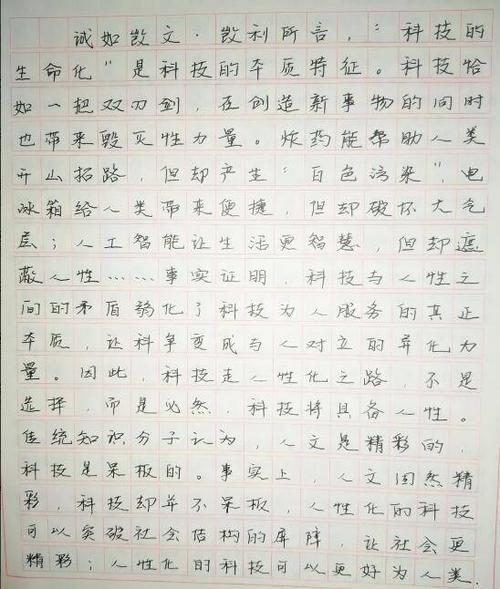 诚如散文·散利所言，“科技的
生命化”是科技的本质特征。科技恰
如一把双刃剑，在创造新事物的同时
也带来毁灭性力量。炸药能帮助人类
开山拓路，但却产生“白色污染”，电
冰箱给人类带来便捷，但却破坏大气
层；人工智能让生活更智慧，但却遮
蔽人性……事实证明，科技与人性之
间的矛盾弱化了科技为人服务的真正
本质，让科争变成与人对立的异化力
量。因此，科技走人性化之路，不是
选择，而是必然，科技将具备人性。
传统知识分子认为，人文是精彩的，
科技是呆板的。事实上，人文固然精
彩，科技却并不呆板，人性化的科技
可以突破社会结构的屏障，让社会更
精彩；人性化的科技可以更好为人类